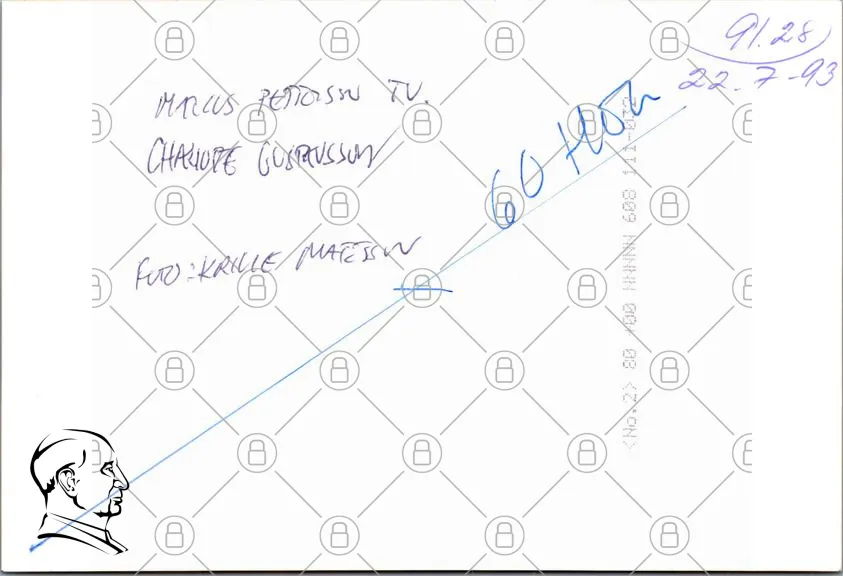 91.28
22.7-93
MARCUS PETTERSSON T.V.
CHARLOTTE GUSTAVSSON
60 HÖJ
FOTO: KRILLE MATTSSON
<No.2> 80 NNNNN 608